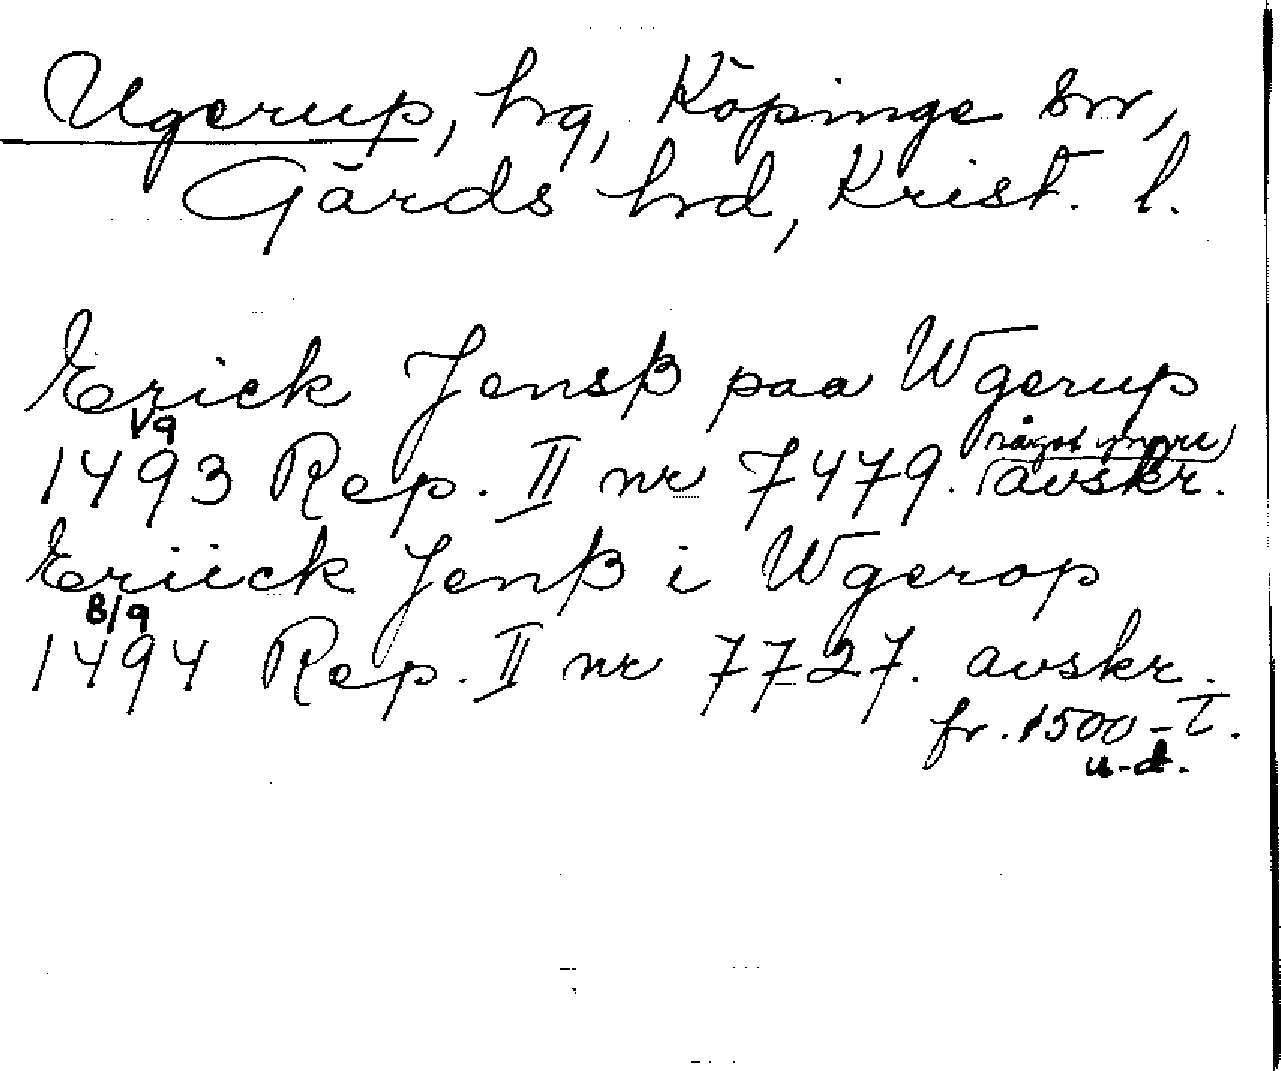 Ugerup, hg, Köpinge sn,
Gärds hd, Krist. l.
Erick Jensß paa Wgerup
1/9
något yngre
1493 Rep. II nr 7479. avskr.
Eriick Jenß i Wgerop
8/9
1494 Rep. II nr 7727. avskr.
fr. 1500-T.
u.d.